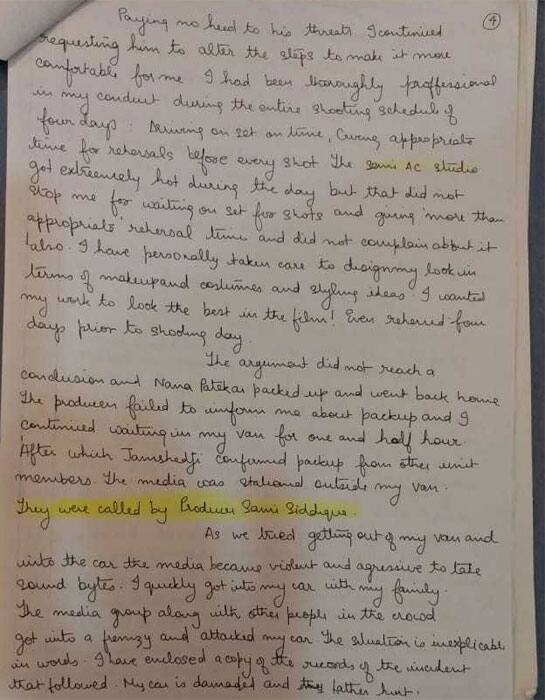 4
Paying no heed to his threats I continued
requesting him to alter the steps to make it more
comfortable for me. I had been thoroughly proffessional
in my conduct during the entire shooting schedule of
four days : Arriving on set on time, Giving appropriate
time for rehersals before every shot The Semi AC studio
got extremely hot during the day but that did not
stop me for waiting on set for shots and giving more than
appropriate rehersal time and did not complain about it
also. I have personally taken care to design my look in
terms of makeup and costumes and styling ideas. I wanted
my work to look the best in the film! Even rehersed four
days prior to shooting day.
The argument did not reach a
conclusion and Nana Patekar packed up and went back home
The producer failed to inform me about packup and I
continued waiting in my van for one and half hour.
After which Jamshedji confirmed packup from other unit
members. The media was stationed outside my van.
They were called by Producer Sami Siddique.
As we tried getting out of my van and
into the car the media became violent and agressive to take
sound bytes. I quickly got into my car with my family.
The media group along with other people in the crowd
got into a frenzy and attacked my car. The situation is inexplicable
in words. I have enclosed a copy of the records of the incident
that followed. My car is damaged and father hurt.